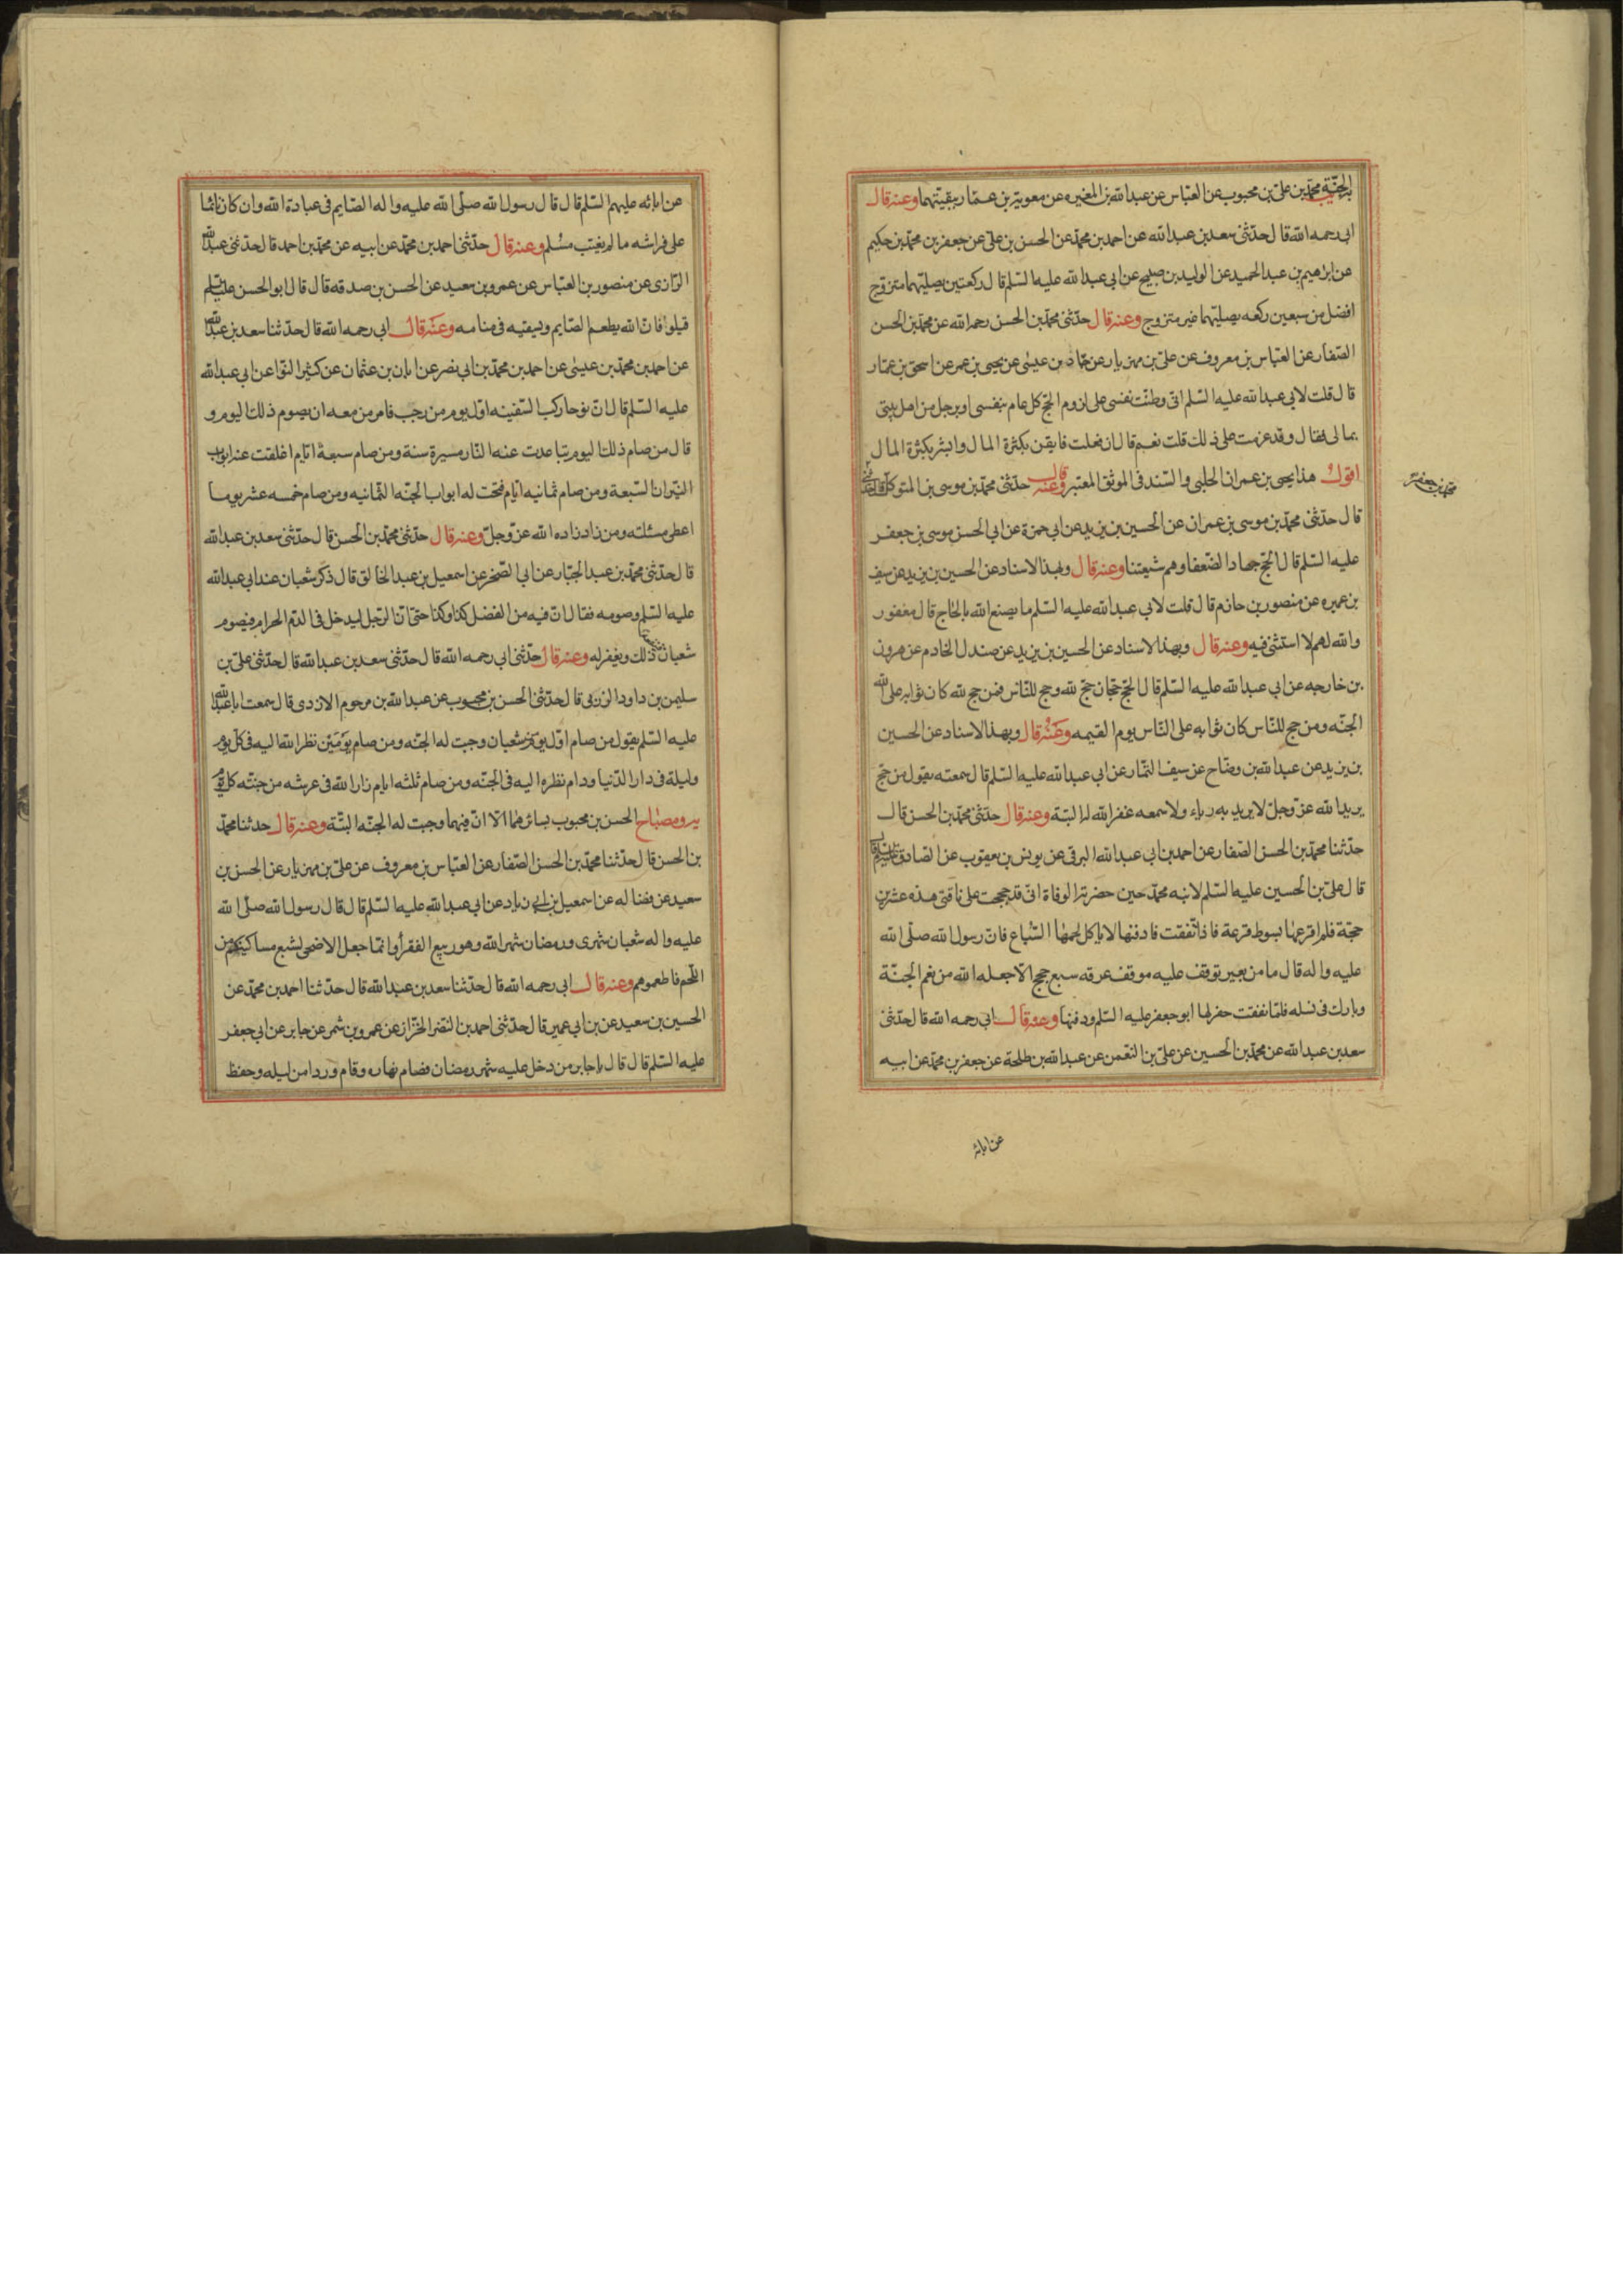 الجنّة محمد بن علي بن محبوب عن العبّاس عن عبد الله بن المغيره عن معوية بن عمّار ببقيّتهما وعنه قال
ابى رحمه الله قال حدّثنى سعد بن عبد الله عن احمد بن محمّد عن الحسن بن على عن جعفر بن محمّد بن حكيم
عن ابرهيم بن عبد الحميد عن الوليد بن صبيح عن ابى عبد الله عليه السّلم قال ركعتين يصلّيهما متزوّج
افضل من سبعين ركعه يصلّيهما غير متزوج وعنه قال حدّثنى محمّد بن الحسن رحمه الله عن محمّد بن الحسن
الصّفار عن العبّاس بن معروف عن علىّ بن مهزيار عن حمّاد بن عيسى عن يحيى بن عمر عن اسحق بن عمّار
قال قلت لابى عبد الله عليه السّلم انّى وطنّت نفسى على لزوم الحجّ كلّ عام بنفسى او برجل من اهل بيتى
بمالى فقال وقد عزمت على ذلك قلت نعم قال ان فعلت فايقن بكثرة المال وابشر بكثرة المال
اقول هذا يحيى بن عمران الحلبى والسّند فى الموثق المعتبر وعنه قال حدّثنى محمّد بن موسى بن المتوكل قال حدثنى
محمد بن جعفر
قال حدّثنى محمّد بن موسى بن عمران عن الحسين بن يزيد عن ابى حمزة عن ابى الحسن موسى بن جعفر
عليه السّلم قال الحجّ جهاد الضّعفا وهم شيعتنا وعنه قال وبهذا الاسناد عن الحسين بن يزيد عن سيف
بن عميره عن منصور بن حازم قال قلت لابى عبد الله عليه السّلم ما يصنع الله بالحاج قال مغفور
والله لهم لا استثنى فيه وعنه قال وبهذا الاسناد عن الحسين بن يزيد عن صندل الخادم عن هرون
بن خارجه عن ابى عبد الله عليه السّلم قال الحجّ حجّان حجّ لله وحج للنّاس فمن حج لله كان ثوابه على الله
الجنّه ومن حج للنّاس كان ثوابه على النّاس يوم القيمه وعنه قال وبهذا الاسناد عن الحسين
بن يزيد عن عبد الله بن وضّاح عن سيف التمّار عن ابى عبد الله عليه السّلم قال سمعته يقول من حجّ
يريد الله عزّ وجلّ لا يريد به رياء ولا سمعه غفر الله له البتة وعنه قال حدّثنى محمّد بن الحسن قال
حدّثنا محمّد بن الحسن الصّفار عن احمد بن ابى عبد الله البرقى عن يونس بن يعقوب عن الصّادق عليه السلم قال
قال علىّ بن الحسين عليه السّلم لابنه محمّد حين حضرته الوفاة انّى قد حججت على ناقتى هذه عشرين
حجّة فلم اقرعها بسوط قرعة فاذا نفقت فادفنها لا يأكل لحمها السّباع فانّ رسول الله صلّى الله
عليه واله قال ما من بعير توقف عليه موقف عرفه سبع حجج الّا جعله الله من نعم الجنّة
وبارك فى نسله فلمّا نفقت حفر لها ابو جعفر عليه السّلم ودفنها وعنه قال ابى رحمه الله قال حدّثنى
سعد بن عبد الله عن محمّد بن الحسين عن علىّ بن النّعمن عن عبد الله بن طلحة عن جعفر بن محمّد عن ابيه
عن ابائه
عن ابائه عليهم السّلم قال قال رسول الله صلّى الله عليه واله الصّايم فى عبادة الله وان كان نائما
على فراشه ما لم يغتب مسلم وعنه قال حدّثنى احمد بن محمّد عن ابيه عن محمّد بن احمد قال حدّثنى عبد الله
الرّازى عن منصور بن العبّاس عن عمرو بن سعيد عن الحسن بن صدقه قال قال ابو الحسن عليه السلم
قيلوا فانّ الله يطعم الصّايم ويسقيه فى منامه وعنه قال ابى رحمه الله قال حدّثنا سعد بن عبد الله
عن احمد بن محمّد بن عيسى عن احمد بن محمّد بن ابى نصر عن ابان بن عثمان عن كثير النوّا عن ابى عبد الله
عليه السّلم قال انّ نوحا ركب السّفينه اوّل يوم من رجب فامر من معه ان يصوم ذلك اليوم و
قال من صام ذلك اليوم تباعدت عنه النّار مسيرة سنة ومن صام سبعة ايّام اغلقت عنه ابواب
النّيران السّبعة ومن صام ثمانيه ايّام فتحت له ابواب الجنّه الثمانيه ومن صام خمسه عشر يوما
اعطى مسئلته ومن زاد زاده الله عزّ وجلّ وعنه قال حدّثنى محمّد بن الحسن قال حدّثنى سعد بن عبد الله
قال حدّثنى محمّد بن عبد الجبّار عن ابى الصّخر عن اسمعيل بن عبد الخالق قال ذكر شعبان عند ابى عبد الله
عليه السّلم وصومه فقال انّ فيه من الفضل كذا وكذا حتى انّ الرّجل ليدخل فى الدّم الحرام فيصوم
شعبان ذلك ويغفر له وعنه قال حدّثنى ابى رحمه الله قال حدّثنى سعد بن عبد الله قال حدّثنى علىّ بن
سليمن بن داود الرزبى قال حدّثنا الحسن بن محبوب عن عبد الله بن مرحوم الازدى قال سمعت ابا عبد الله
عليه السّلم يقول من صام اوّل يوم من شعبان وجبت له الجنّه ومن صام يومين نظر الله اليه فى كلّ يوم
وليلة فى دار الدّنيا ودام نظره اليه فى الجنّه ومن صام ثلثه ايام زار الله فى عرشه من جنّته كل يوم
يب ومصباح الحسن بن محبوب بسائرهما الا انّ فيهما وجبت له الجنّه البتّة وعنه قال حدثنا محمّد
بن الحسن قال حدّثنا محمّد بن الحسن الصّفار عن العبّاس بن معروف عن علىّ بن مهزيار عن الحسن بن
سعيد عن فضاله عن اسمعيل بن ابى زياد عن ابى عبد الله عليه السّلم قال قال رسول الله صلّى الله
عليه واله شعبان شهرى ورمضان شهر الله وهو ربيع الفقرأ وانّما جعل الاضحى لشبع مساكينكم من
اللّحم فاطعموهم وعنه قال ابى رحمه الله قال حدّثنا سعد بن عبد الله قال حدّثنا احمد بن محمّد عن
الحسين بن سعيد عن بن ابى عمير قال حدّثنى احمد بن النّضر الخزّاز عن عمرو بن شمر عن جابر عن ابى جعفر
عليه السّلم قال قال يا جابر من دخل عليه شهر رمضان فصام نهاره وقام وردا من ليله وحفظ